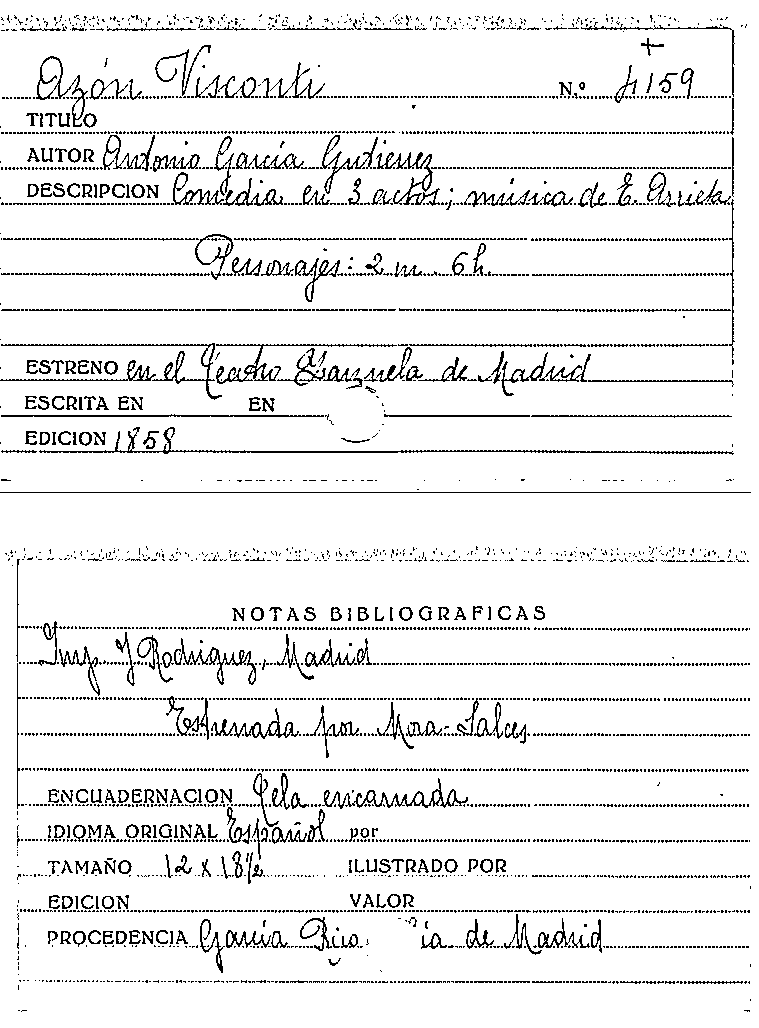 Azón Visconti N.º 4159
TITULO
AUTOR Antonio García Gutierrez
DESCRIPCION Comedia en 3 actos; música de E. Arrieta
Personajes: 2 m. 6 h.
ESTRENO en el Teatro Zarzuela de Madrid
ESCRITA EN EN
EDICION 1858
NOTAS BIBLIOGRAFICAS
Imp. J Rodriguez, Madrid
Estrenada por Mora-Salces
ENCUADERNACION Tela encarnada
IDIOMA ORIGINAL Español por
TAMAÑO 12 x 18½ ILUSTRADO POR
EDICION VALOR
PROCEDENCIA García Rico de Madrid